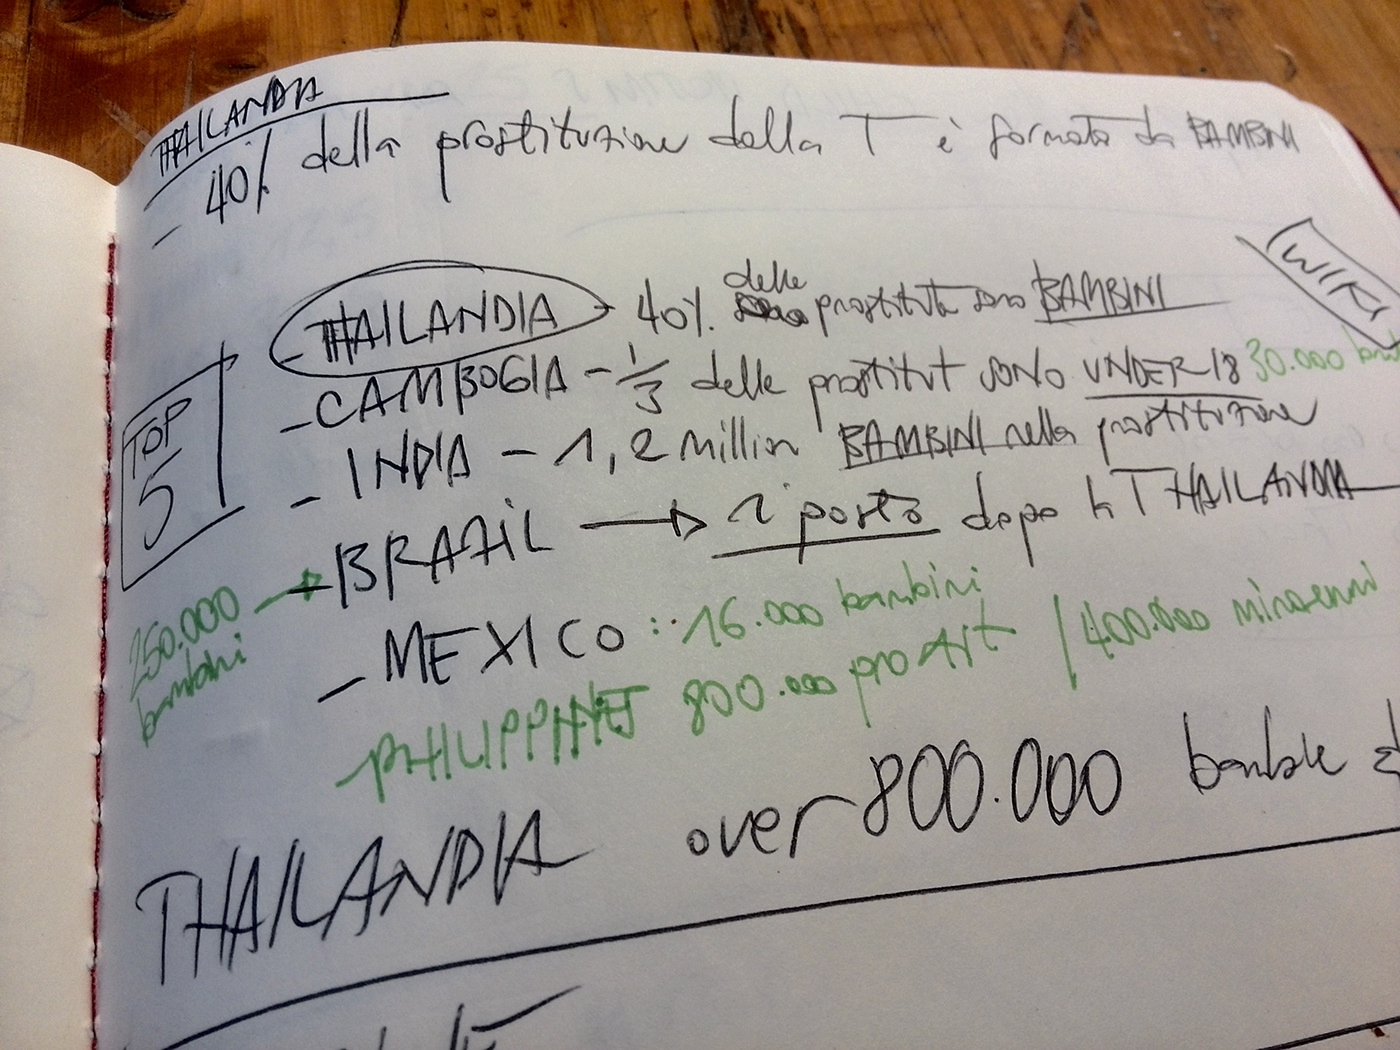 THAILANDIA
- 40% della prostituzione della T è formata da BAMBINI
WIKI
TOP 5
- THAILANDIA - 40% delle prostitute sono BAMBINI
- CAMBOGIA - 1/3 delle prostitut sono UNDER 18 30.000
- INDIA - 1,2 million BAMBINI nella prostituzione
- BRAZIL → 1° posto dopo la THAILANDIA
250.000 bambini →
- MEXICO : 16.000 bambini
- PHILIPPINES 800.000 prostit / 400.000 minorenni
THAILANDIA over 800.000